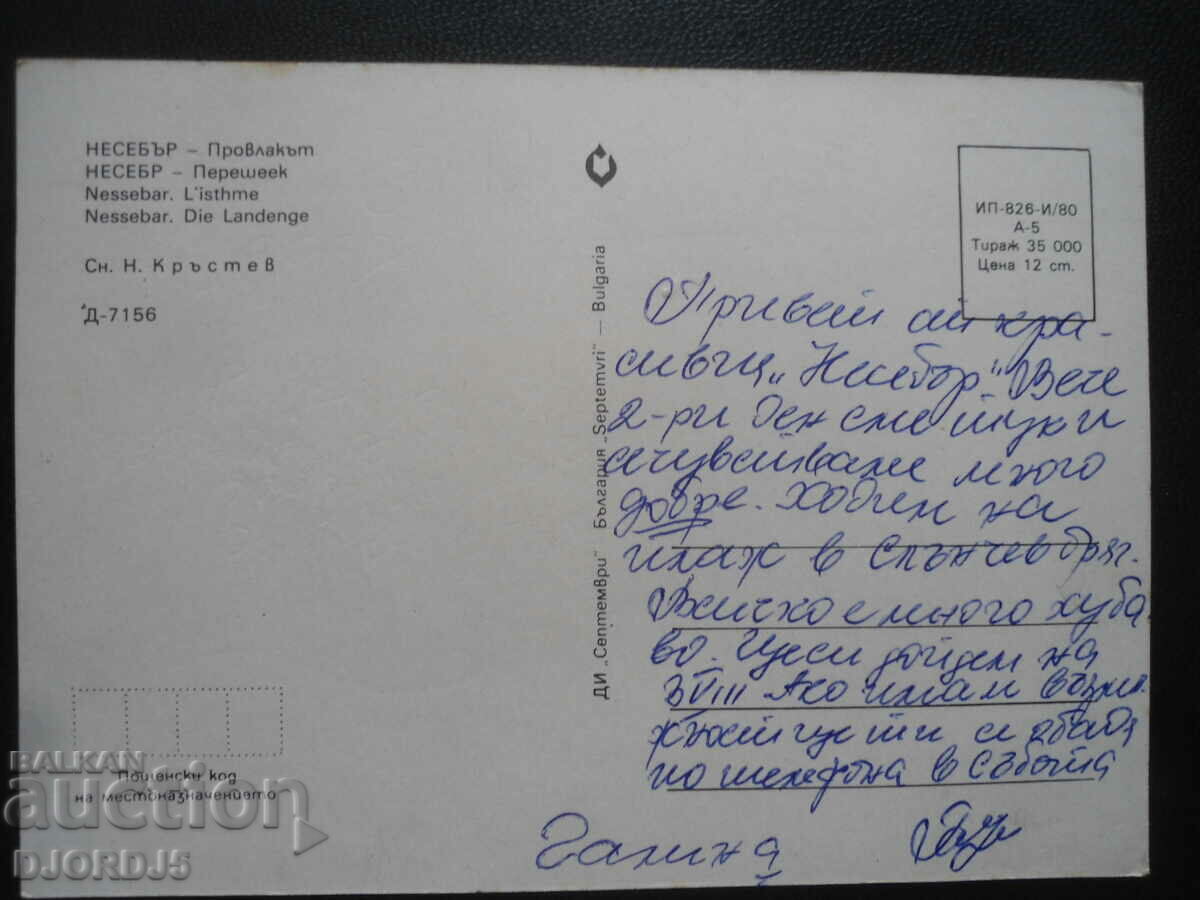 НЕСЕБЪР – Провлакът
НЕСЕБР – Перешеек
Nessebar. L'isthme
Nessebar. Die Landenge
Сн. Н. Кръстев
Д-7156
ДИ „Септември" България „Septemvri" — Bulgaria
ИП-826-И/80
А-5
Тираж 35 000
Цена 12 ст.
Привет от кра-
сивъ „Несебър". Вече
2-ри ден сме тук и
се чувстваме много
добре. Ходим на
плаж в Слънчев бряг.
Всичко е много хуба
во. Ще си дойдем на
3 VIII Ако имам възмо
жност ще ти се обадя
по телефона в събота
Галина
Пощенски код
на местоназначението
BALKAN
auction
DJORDJ5